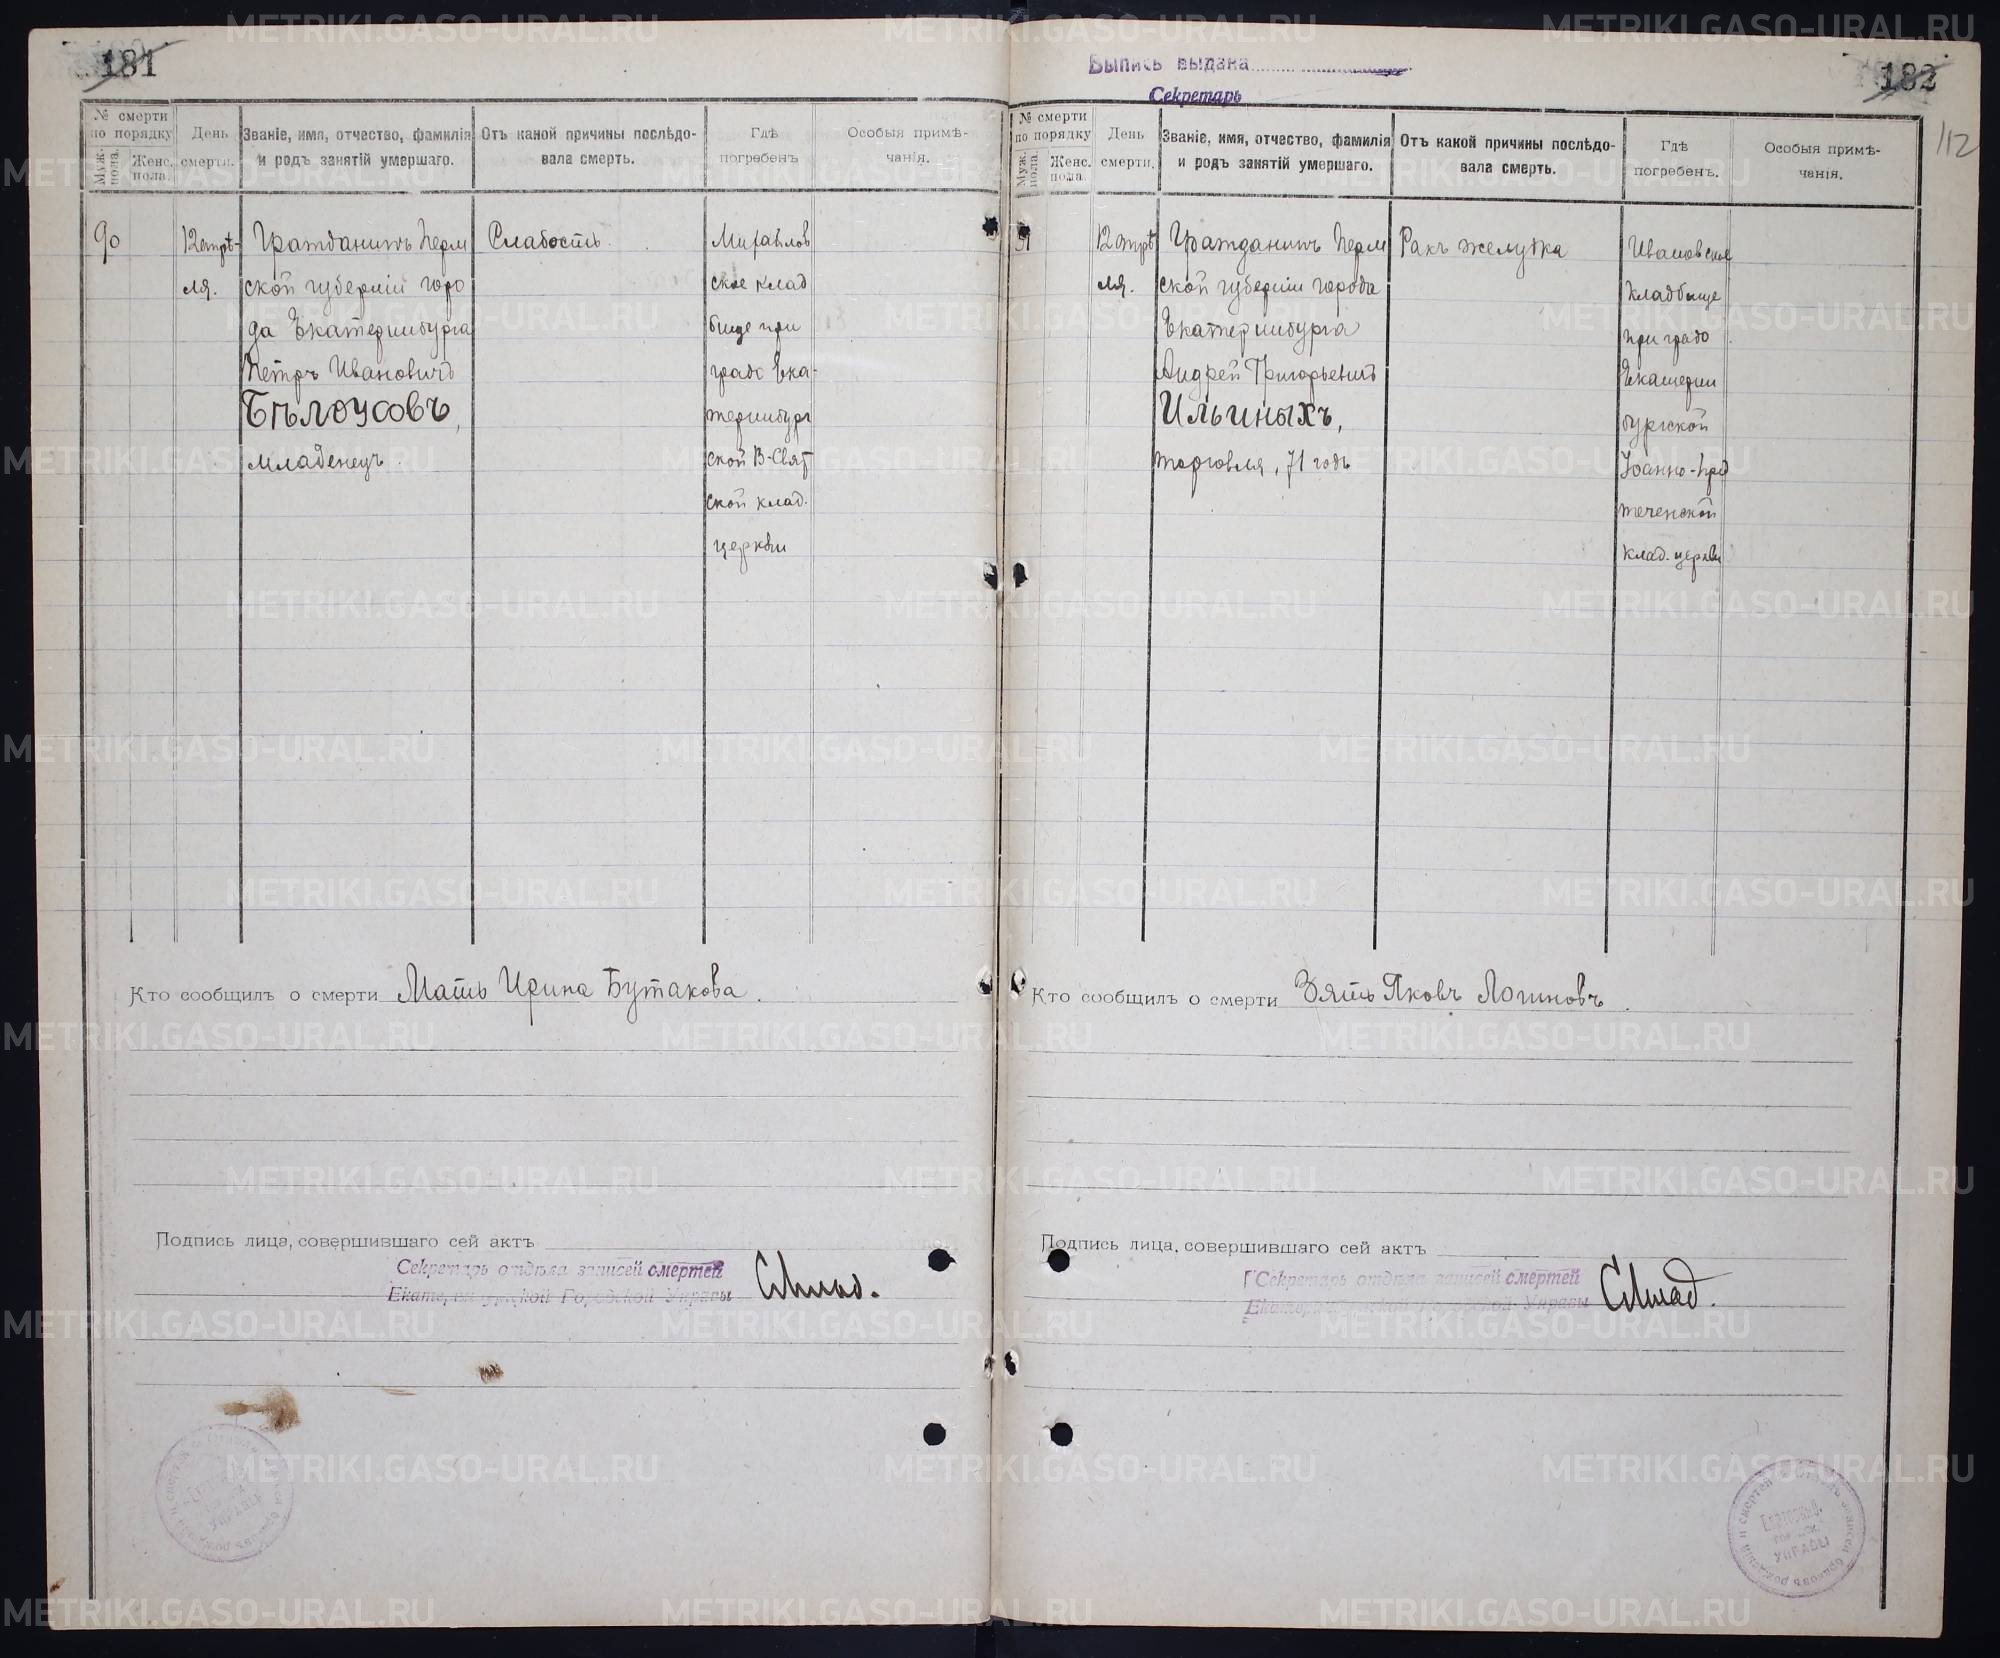 181
№ смерти по порядку
Муж. пола.
Женс. пола.
День смерти.
Званіе, имя, отчество, фамилія и родъ занятій умершаго.
Отъ какой причины послѣдовала смерть.
Гдѣ погребенъ
Особыя примѣчанія.
90
12 апрѣ-
ля.
Гражданинъ Перм
ской губерніи горо
да Екатеринбурга
Петръ Ивановичъ
Бѣлоусовъ,
младенецъ.
Слабость.
Михайлов
ское клад
бище при
градо Ека-
теринбург
ской В-Свят
ской клад.
церкви
Кто сообщилъ о смерти Мать Ирина Бутакова.
Подпись лица, совершившаго сей актъ
Секретарь отдѣла записей смертей
Екатеринбургской Городской Управы
Выпись выдана
Секретарь
182
112
№ смерти по порядку
Муж. пола.
Женс. пола.
День смерти.
Званіе, имя, отчество, фамилія и родъ занятій умершаго.
Отъ какой причины послѣдовала смерть.
Гдѣ погребенъ.
Особыя примѣчанія.
91
12 апрѣ
ля.
Гражданинъ Перм
ской губерніи города
Екатеринбурга
Андрей Григорьевичъ
Ильиныхъ,
торговля, 71 годъ
Ракъ желудка
Ивановское
кладбище
при градо
Екатерин
бургской
Іоанно-Пред
теченской
клад. церкви
Кто сообщилъ о смерти Зять Яковъ Логиновъ.
Подпись лица, совершившаго сей актъ
Секретарь отдѣла записей смертей
Екатеринбургской Городской Управы
METRIKI.GASO-URAL.RU